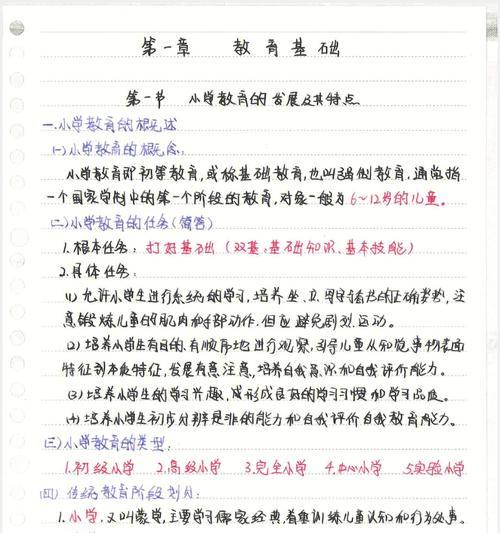 第一章 教育基础
第一节 小学教育的发展及其特点
一.小学教育的概述
(一)小学教育的概念:
小学教育即初等教育,或称基础教育,也叫强制教育,通常指
一个国家学制中的第一个阶段的教育,对象一般为6~12岁的儿童。
(二)小学教育的任务(简答)
1.根本任务: 打好基础(双基:基础知识、基本技能)
2.具体任务:
(1)允许小学生进行系统的学习,培养坐、立、的正确姿势,注
意锻炼儿童的肌肉和手部动作.但应避免剧烈运动。
(2)培养小学生有目的、有顺序地进行观察,引导儿童从知觉事物表面
特征到本质特征,发展有意注意,培养自我意识和自我评价能力。
(3)培养小学生的学习兴趣,使形成良好的学习习惯和学习品质。
(4)培养小学生初步分辨是非的能力和自我评价自我教育能力。
(三)小学教育的类型:
1.初级小学 2.高级小学 3.完全小学 4.中心小学 5.实验小学
(四)传统教育阶段划分:
1.小学,又叫蒙学,主要学习儒家经典,着重训练儿童认知和行为处事。